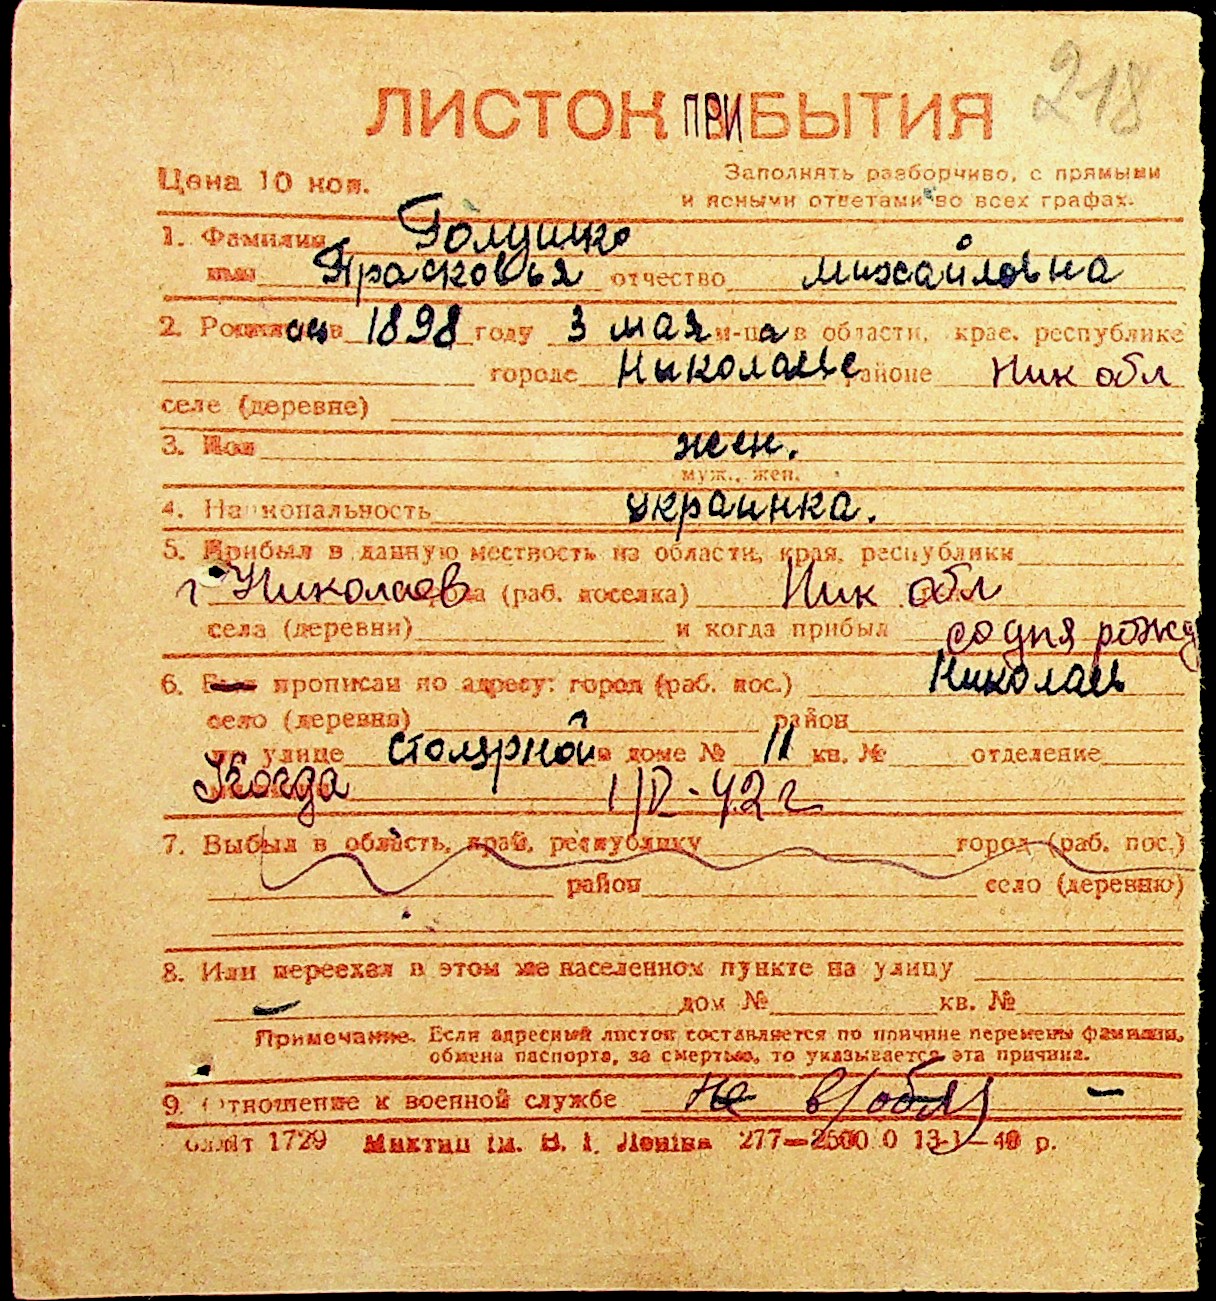 218
ЛИСТОК ПРИБЫТИЯ
Цена 10 коп.
Заполнять разборчиво, с прямыми
и ясными ответами во всех графах.
1. Фамилия Голушко
имя Прасковья отчество Михайловна
2. Родился в 1898 году 3 мая м-ца в области, крае, республике
городе Николаеве районе Ник обл
селе (деревне)
3. Пол жен.
муж., жен.
4. Национальность украинка.
5. Прибыл в данную местность из области, края, республики
г Николаев (раб. поселка) Ник обл
села (деревни) и когда прибыл со дня рожд
6. прописан по адресу: город (раб. пос.) Николаев
село (деревня) район
по улице столярной в доме № 11 кв. № отделение
Когда 1/IV-42 г
7. Выбыл в область, край, республику город (раб. пос.)
район село (деревню)
8. Или переехал в этом же населенном пункте на улицу
— дом № кв. №
Примечание. Если адресный листок составляется по причине перемены фамилии,
обмена паспорта, за смертью, то указывается эта причина.
9. Отношение к военной службе не в/обяз —
1729 Миктип ім. В. І. Леніна 277—2500 0 13-1—40 р.